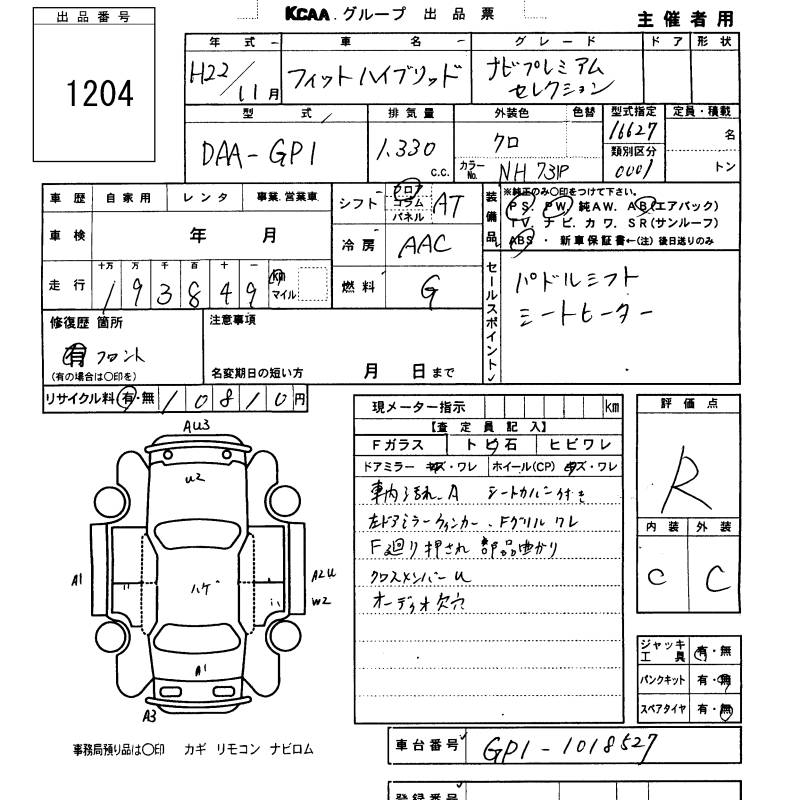 KCAA.グループ 出品票
主催者用
出品番号
1204
年式 車名 グレード ドア 形状
H22/11月 フィットハイブリッド ナビプレミアムセレクション
型式 排気量 外装色 色替 型式指定 定員・積載
DAA-GP1 1.330 c.c. クロ カラーNo. NH731P 16627 名
類別区分 0001 トン
車歴 自家用 レンタ 事業.営業車
シフト フロア コラム パネル AT
装備品 ※純正のみ〇印をつけて下さい。
PS. PW. 純AW. AB(エアバック)
TV. ナビ. カワ. SR(サンルーフ)
ABS ・ 新車保証書←(注) 後日送りのみ
車検 年 月
冷房 AAC
走行 十万 万 千 百 十 一
193849 km マイル
燃料 G
セールスポイント
パドルシフト
シートヒーター
修復歴 箇所
有 フロント
(有の場合は〇印を)
注意事項
名変期日の短い方 月 日まで
リサイクル料 有・無 10810円
現メーター指示 km
【査定員記入】
Fガラス トビ石 ヒビワレ
ドアミラー キズ・ワレ ホイール(CP) キズ・ワレ
車内汚れ.A シートカバー付き
左ドアミラーウィンカー.Fグリル ワレ
F廻り押され 部品曲がり
クロスメンバーU
オーディオ欠穴
評価点
R
内装 外装
C C
AU3
U2
A1
ハゲ
A2U
W2
A1
A3
ジャッキ工具 有・無
パンクキット 有・無
スペアタイヤ 有・無
事務局預り品は〇印 カギ リモコン ナビロム
車台番号 GP1-1018527
登録番号